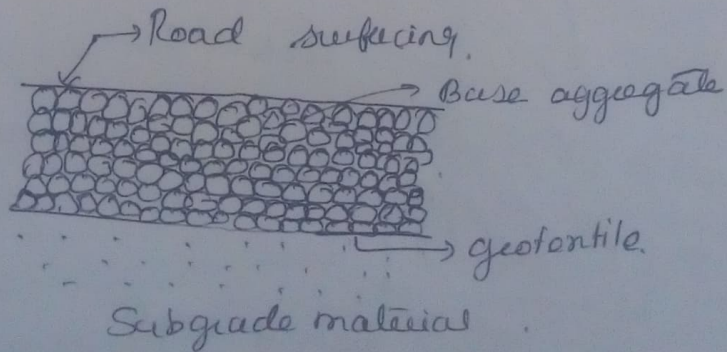 Road surfacing.
Base aggregate
geotextile.
Subgrade material.